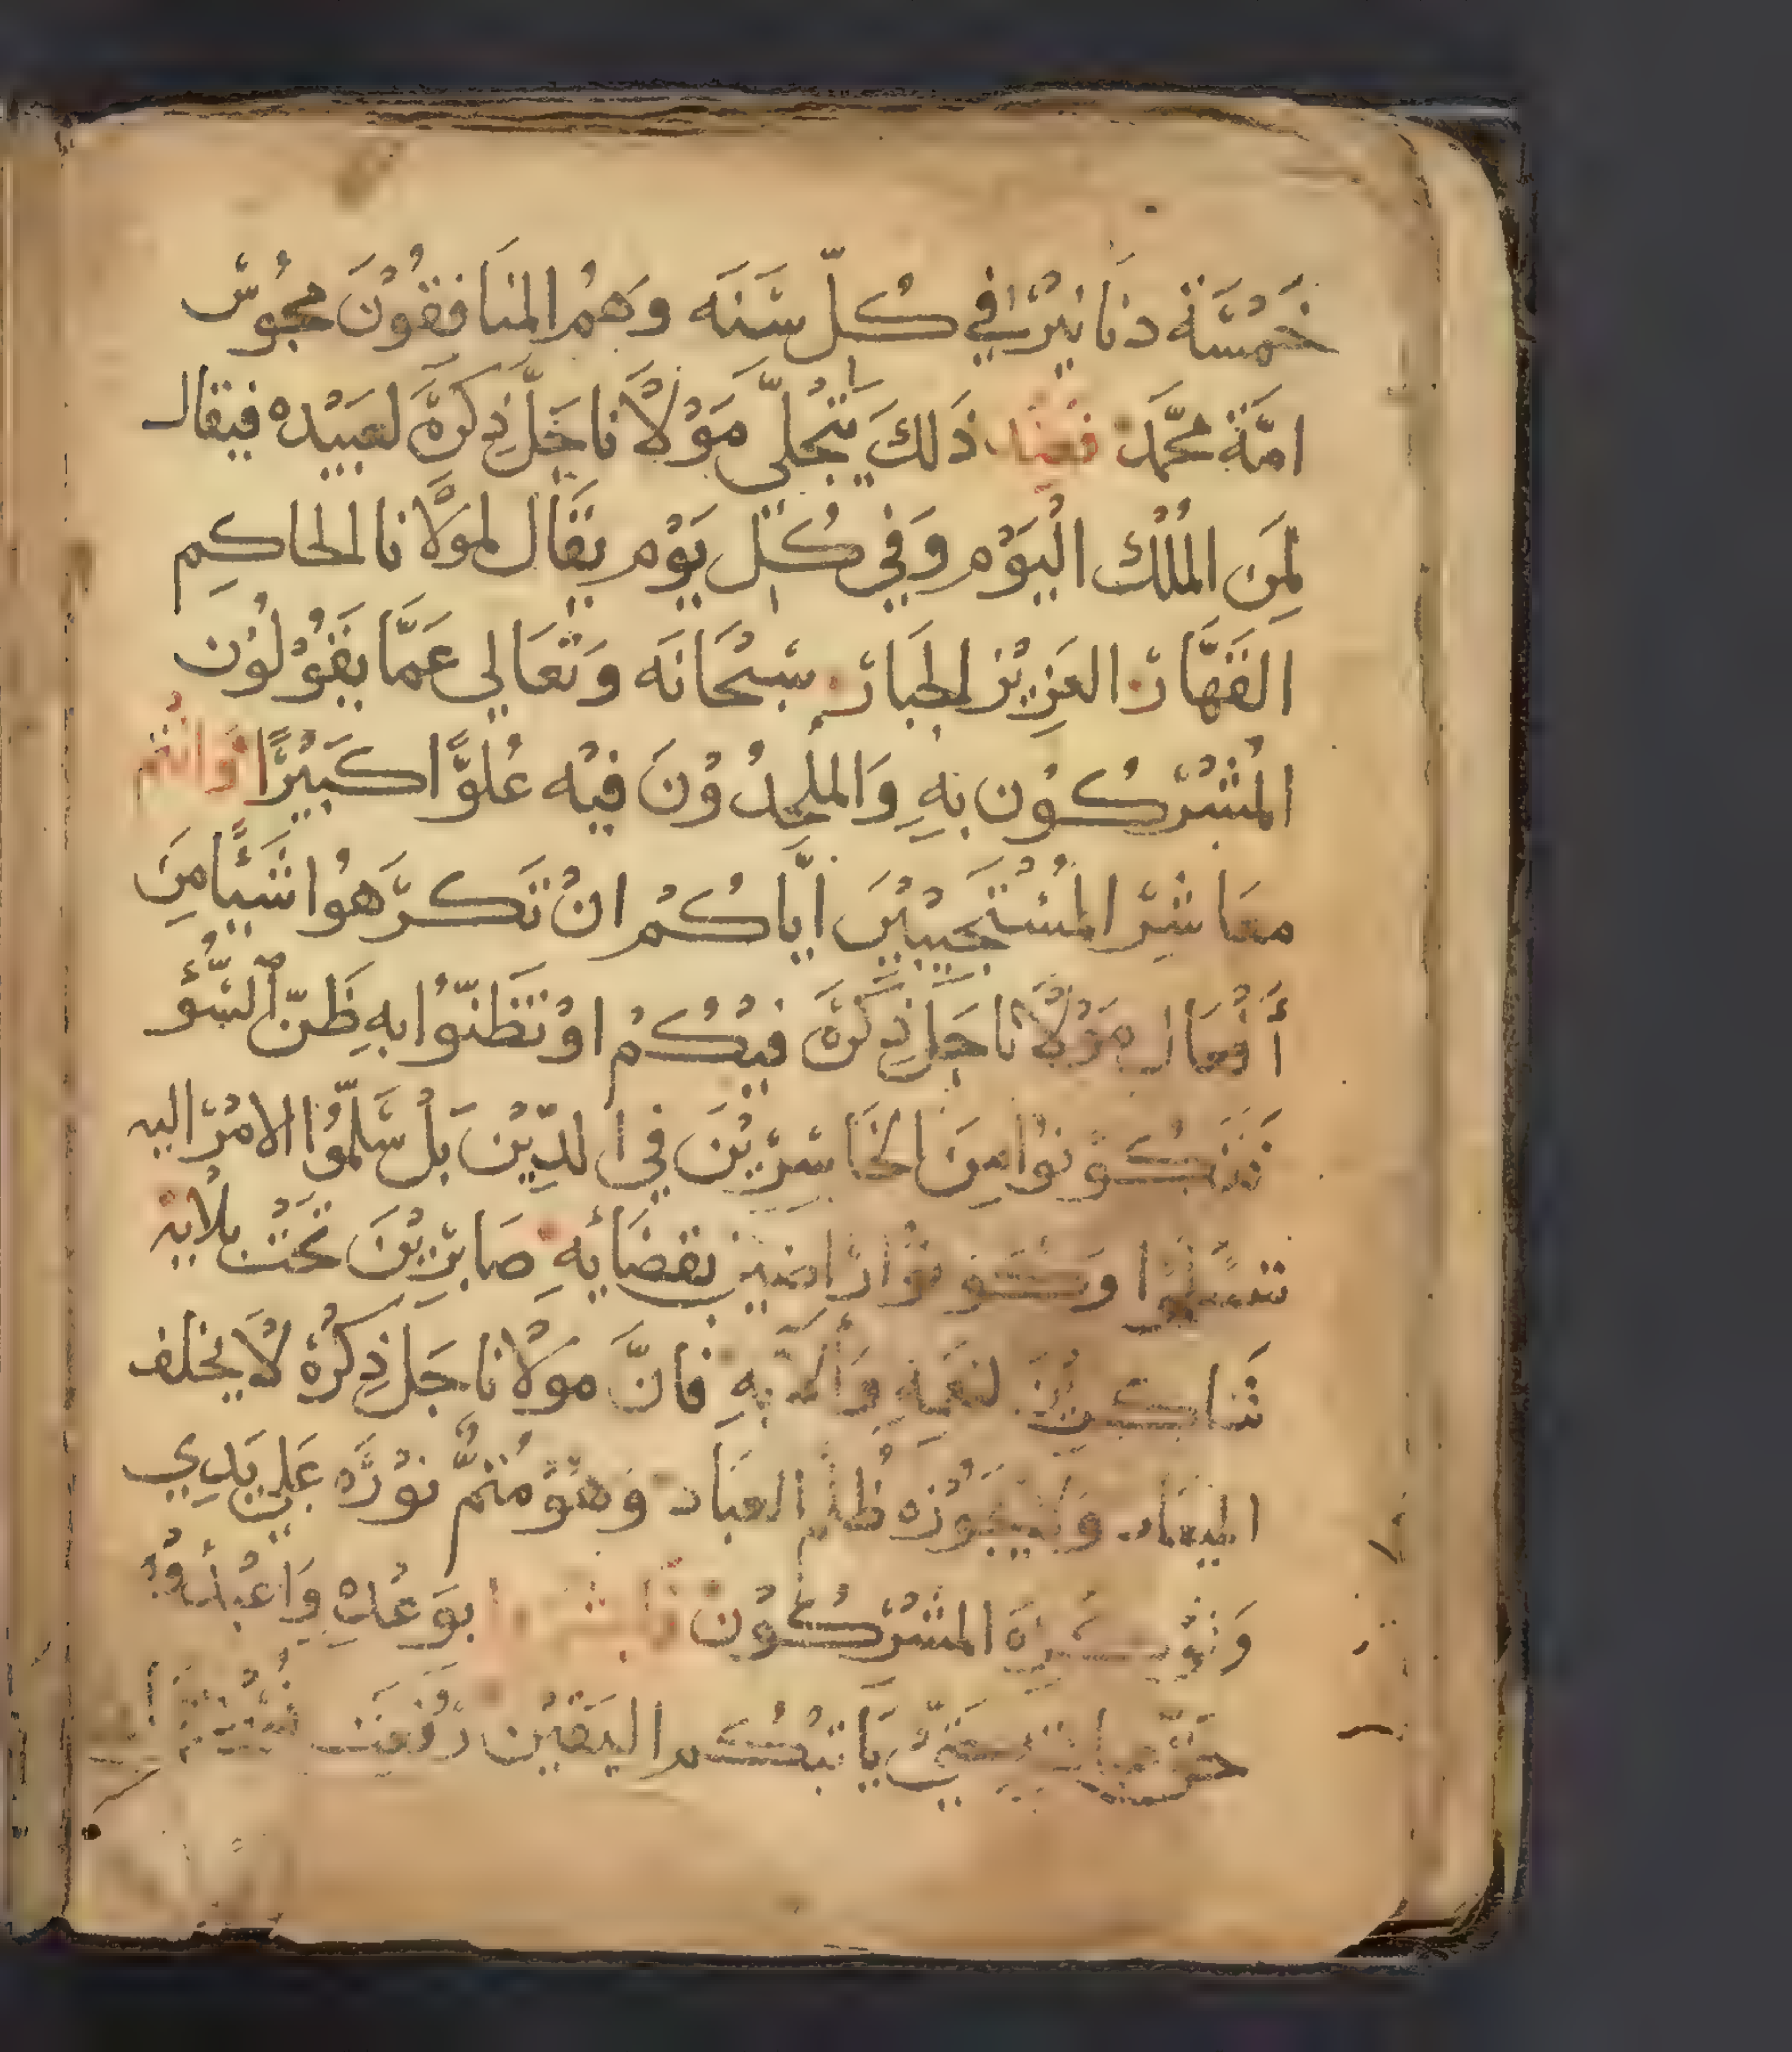 خَمْسَة دنَانِيْر في كُلّ سَنَه وَهمُ المنَافقُوْنَ مجُوْس
امَّة محَمَّد فعند ذَلكَ يَتجْلىّ مَوْلاَنا جَلّ ذِكرَهَ لعَبيْده فيقال
لِمَن المُلْك اليْوَم وَفي كُل يَوْم يقَال لموْلاَنا الحاكِم
القَهَّار العَزِيْز الجبَار سبْحَانَه وَتعَالي عَمَّا يقوُلوُن
المُشْرِكوُن بهِ وَالملحِدُوْنَ فيْه عُلوًّا كبَيْرًا وَانتُم
معَاشِرَ المُسْتجيبْيْنَ ايَّاكُمْ انْ تَكرَهوُا شَيًْا مِنَ
أَفْعَال مَوْلاَنا جَل ذِكرَهَ فيْكُمْ اوْ تَظنّوُا بهِ ظَنّ السُّوْ
فتَكوْنوُا مِنَ الخَاسِرِيْنَ في الدِّيْن بَلْ سَلّموُا الامْرَ اليه
تسليْمًا وَكوْنوُا رَاضين بقضَائهِ صَابرِيْنَ تحَتْ بلائه
شَاكرِيْنَ لنعَمَهِ وَألآيهِ فَانَّ موْلاَنا جَل ذِكرْهَ لاَ يخلف
الميعَاد وَهُوَ مُتمُّ نوْرَه عَلي يَدِي
وَلوْ كَرِهَ المشْرِكوُن فابشروا بوَعْدِهِ وَاعْبدُوْه
حَقّ حَتىَّ يَأتيْكُم اليَقيْن